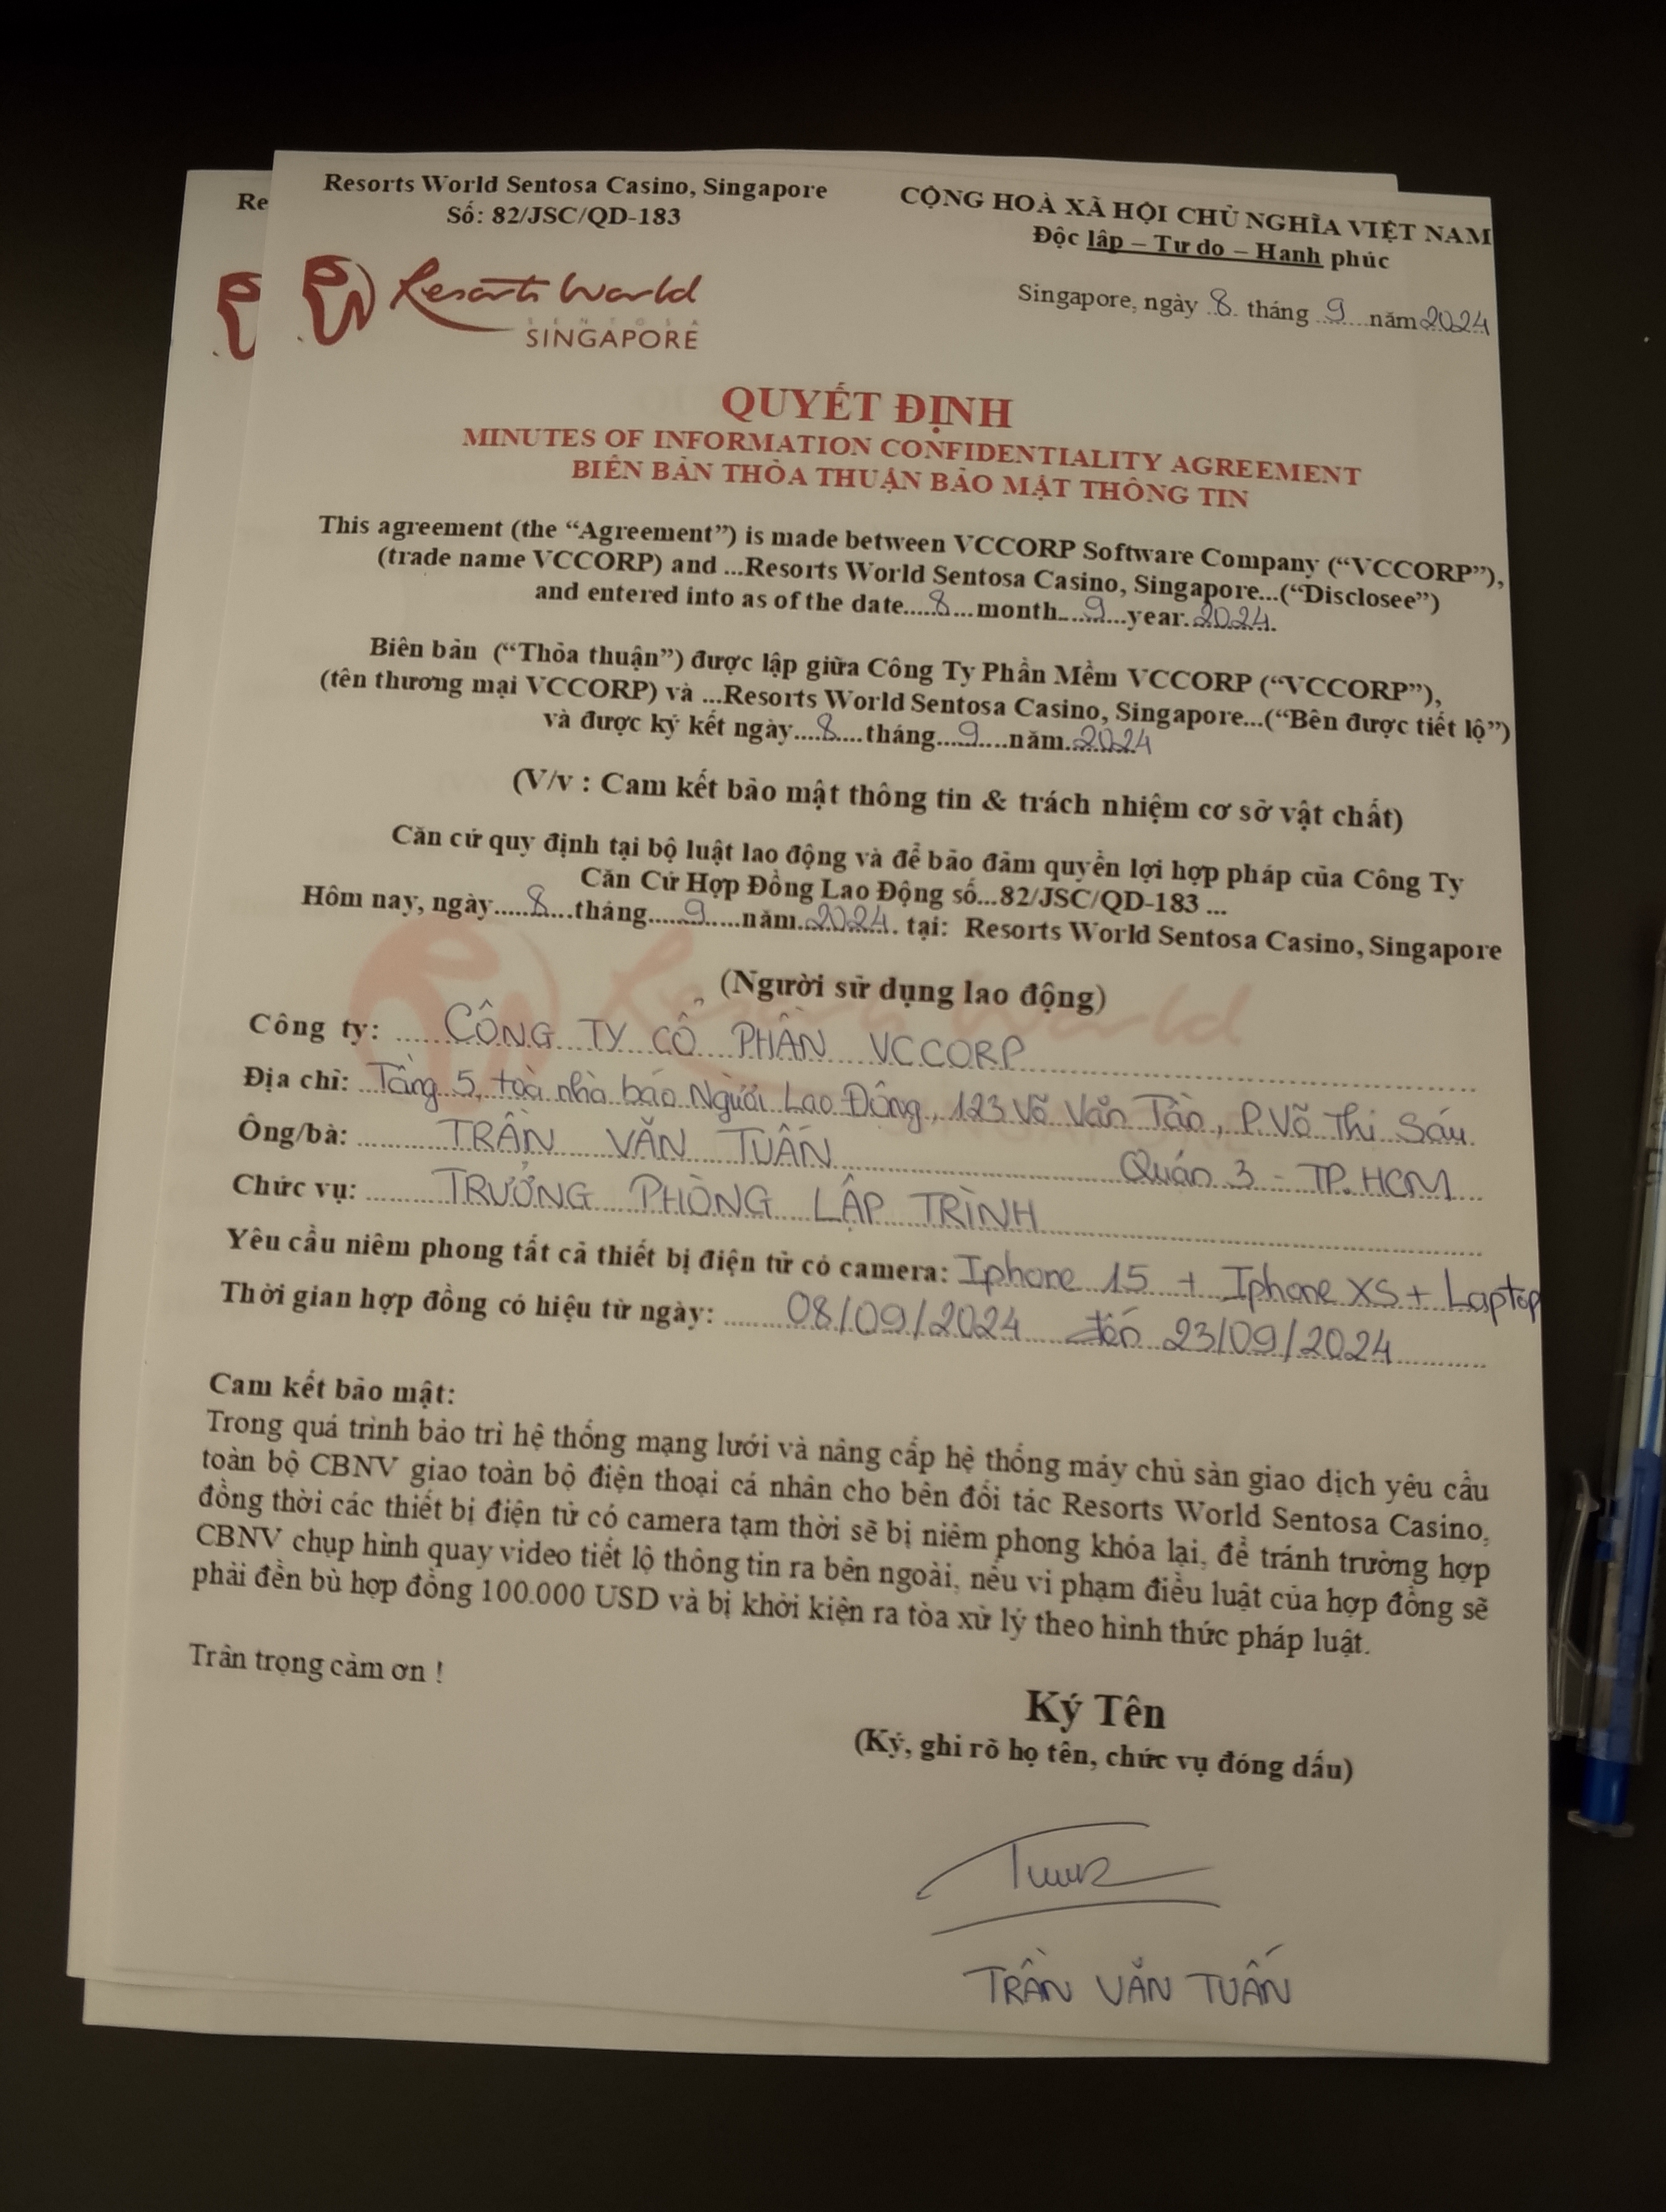 Re
Resorts World Sentosa Casino, Singapore
Số: 82/JSC/QD-183
CỘNG HOÀ XÃ HỘI CHỦ NGHĨA VIỆT NAM
Độc lập – Tự do – Hạnh phúc
Resorts World
SENTOSA
SINGAPORE
Singapore, ngày 8 tháng 9 năm 2024
QUYẾT ĐỊNH
MINUTES OF INFORMATION CONFIDENTIALITY AGREEMENT
BIÊN BẢN THỎA THUẬN BẢO MẬT THÔNG TIN
This agreement (the “Agreement”) is made between VCCORP Software Company (“VCCORP”),
(trade name VCCORP) and ...Resorts World Sentosa Casino, Singapore...(“Disclosee”)
and entered into as of the date.....8...month...9...year.2024.
Biên bản (“Thỏa thuận”) được lập giữa Công Ty Phần Mềm VCCORP (“VCCORP”),
(tên thương mại VCCORP) và ...Resorts World Sentosa Casino, Singapore...(“Bên được tiết lộ”)
và được ký kết ngày....8....tháng....9....năm.2024
(V/v : Cam kết bảo mật thông tin & trách nhiệm cơ sở vật chất)
Căn cứ quy định tại bộ luật lao động và để bảo đảm quyền lợi hợp pháp của Công Ty
Căn Cứ Hợp Đồng Lao Động số...82/JSC/QD-183 ...
Hôm nay, ngày.....8....tháng.....9.....năm.2024. tại: Resorts World Sentosa Casino, Singapore
(Người sử dụng lao động)
Công ty: CÔNG TY CỔ PHẦN VCCORP
Địa chỉ: Tầng 5, toà nhà báo Người Lao Động, 123 Võ Văn Tần, P. Võ Thị Sáu
Quán 3 - TP. HCM
Ông/bà: TRẦN VĂN TUẤN
Chức vụ: TRƯỞNG PHÒNG LẬP TRÌNH
Yêu cầu niêm phong tất cả thiết bị điện tử có camera: Iphone 15 + Iphone XS + Laptop
Thời gian hợp đồng có hiệu từ ngày: 08/09/2024 đến 23/09/2024
Cam kết bảo mật:
Trong quá trình bảo trì hệ thống mạng lưới và nâng cấp hệ thống máy chủ sàn giao dịch yêu cầu
toàn bộ CBNV giao toàn bộ điện thoại cá nhân cho bên đối tác Resorts World Sentosa Casino,
đồng thời các thiết bị điện tử có camera tạm thời sẽ bị niêm phong khóa lại, để tránh trường hợp
CBNV chụp hình quay video tiết lộ thông tin ra bên ngoài, nếu vi phạm điều luật của hợp đồng sẽ
phải đền bù hợp đồng 100.000 USD và bị khởi kiện ra tòa xử lý theo hình thức pháp luật.
Trân trọng cảm ơn !
Ký Tên
(Ký, ghi rõ họ tên, chức vụ đóng dấu)
TRẦN VĂN TUẤN